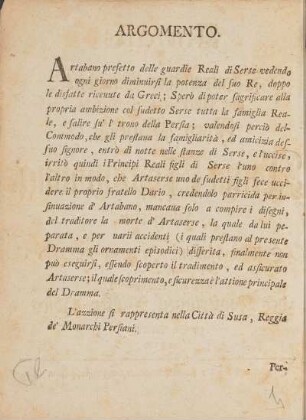 ARGOMENTO.
Artabano prefetto delle guardie Reali di Serse vedendo
ogni giorno diminuirsi la potenza del suo Re, doppo
le disfatte riceuute da Greci; Sperò di poter sagrificare alla
propria ambizione col sudetto Serse tutta la famiglia Rea-
le, e salire sù l' trono della Persia; valendosi perciò del-
Commodo, che gli prestaua la famigliarità, ed amicizia del-
suo signore, entrò di notte nelle stanze di Serse, e l'uccise,
irritò quindi i Principi Reali figli di Serse l'uno contro
l'altro in modo, che Artaserse uno de sudetti figli fece ucci-
dere il proprio fratello Dario, credendolo parricida per in-
sinuazione d' Artabano, mancaua solo a compire i disegni,
del traditore la morte d' Artaserse, la quale da lui pe-
parata, e per uarii accidenti (i quali prestano al presente
Dramma gli ornamenti episodici) differita, finalmente non
può eseguirsi, essendo scoperto il tradimento, ed assicurato
Artaserse; il quale scoprimento, e sicurezza è l'attione principale
del Dramma.
L'azzione si rappresenta nella Città di Susa, Reggia
de' Monarchi Persiani.
Per-